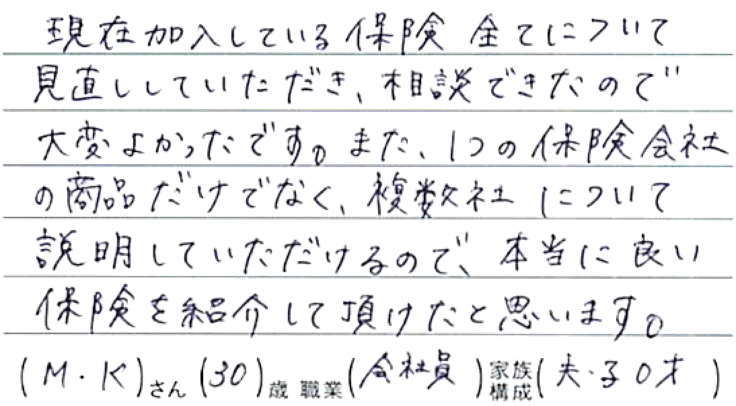 現在加入している保険 全てについて
見直ししていただき、相談できたので
大変よかったです。また、1つの保険会社
の商品だけでなく、複数社 について
説明していただけるので、本当に良い
保険を紹介して頂けたと思います。
(M・K)さん(30)歳 職業(会社員)家族構成(夫・子0才)